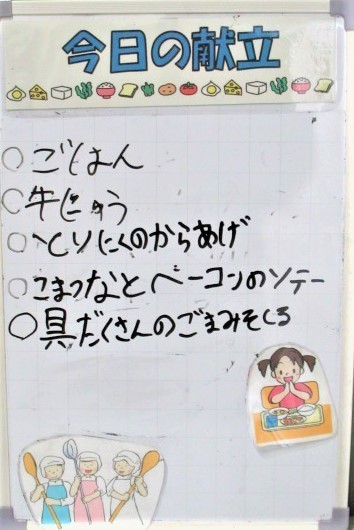 今日の献立
○ごはん
○牛にゅう
○とりにくのからあげ
○こまつなとベーコンのソテー
○具だくさんのごまみそしる